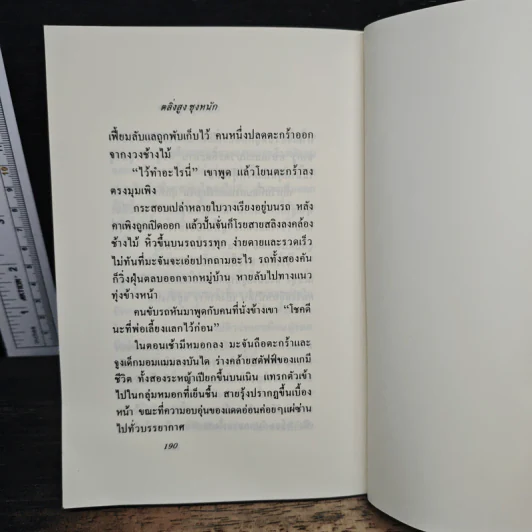 ตลิ่งสูง ซุงหนัก
เฟี้ยมลับแลถูกพับเก็บไว้ คนหนึ่งปลดตะกร้าออก
จากงวงช้างไม้
“ไว้ทำอะไรนี่” เขาพูด แล้วโยนตะกร้าลง
ตรงมุมเพิง
กระสอบเปล่าหลายใบวางเรียงอยู่บนรถ หลัง
คาเพิงถูกเปิดออก แล้วปั้นจั่นก็โรยสายสลิงลงคล้อง
ช้างไม้ หิ้วขึ้นบนรถบรรทุก ง่ายดายและรวดเร็ว
ไม่ทันที่มะจันจะเอ่ยปากถามอะไร รถทั้งสองคัน
ก็วิ่งฝุ่นตลบออกจากหมู่บ้าน หายลับไปทางแนว
ทุ่งข้างหน้า
คนขับรถหันมาพูดกับคนที่นั่งข้างเขา “โชคดี
นะที่พ่อเลี้ยงแลกไว้ก่อน”
ในตอนเช้ามีหมอกลง มะจันถือตะกร้าและ
จูงเด็กมอมแมมลงบันได ร่างคล้ายสตัฟฟ์ของแกมี
ชีวิต ทั้งสองระหญ้าเปียกขึ้นบนเนิน แทรกตัวเข้า
ไปในกลุ่มหมอกที่เย็นชื้น สายรุ้งปรากฏขึ้นเบื้อง
หน้า ขณะที่ความอบอุ่นของแดดอ่อนค่อยๆแผ่ซ่าน
ไปทั่วบรรยากาศ
190